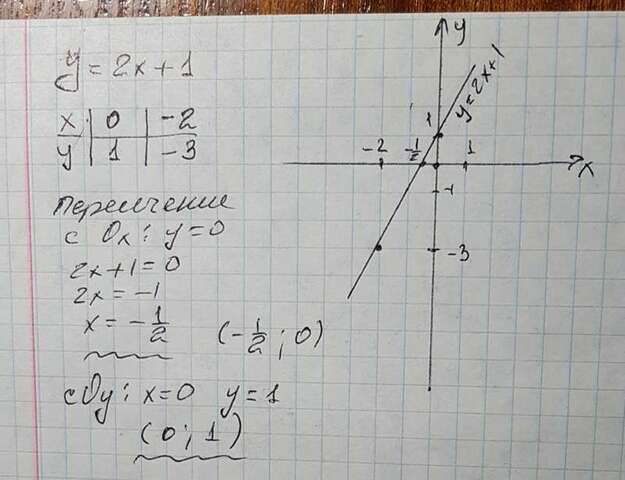 y = 2x + 1
x | 0 | -2
y | 1 | -3
Пересечение
с Ox: y = 0
2x + 1 = 0
2x = -1
x = -1/2 (-1/2; 0)
с Oy: x = 0 y = 1
(0; 1)
y
y = 2x + 1
1
-2 -1/2 1
x
-1
-3